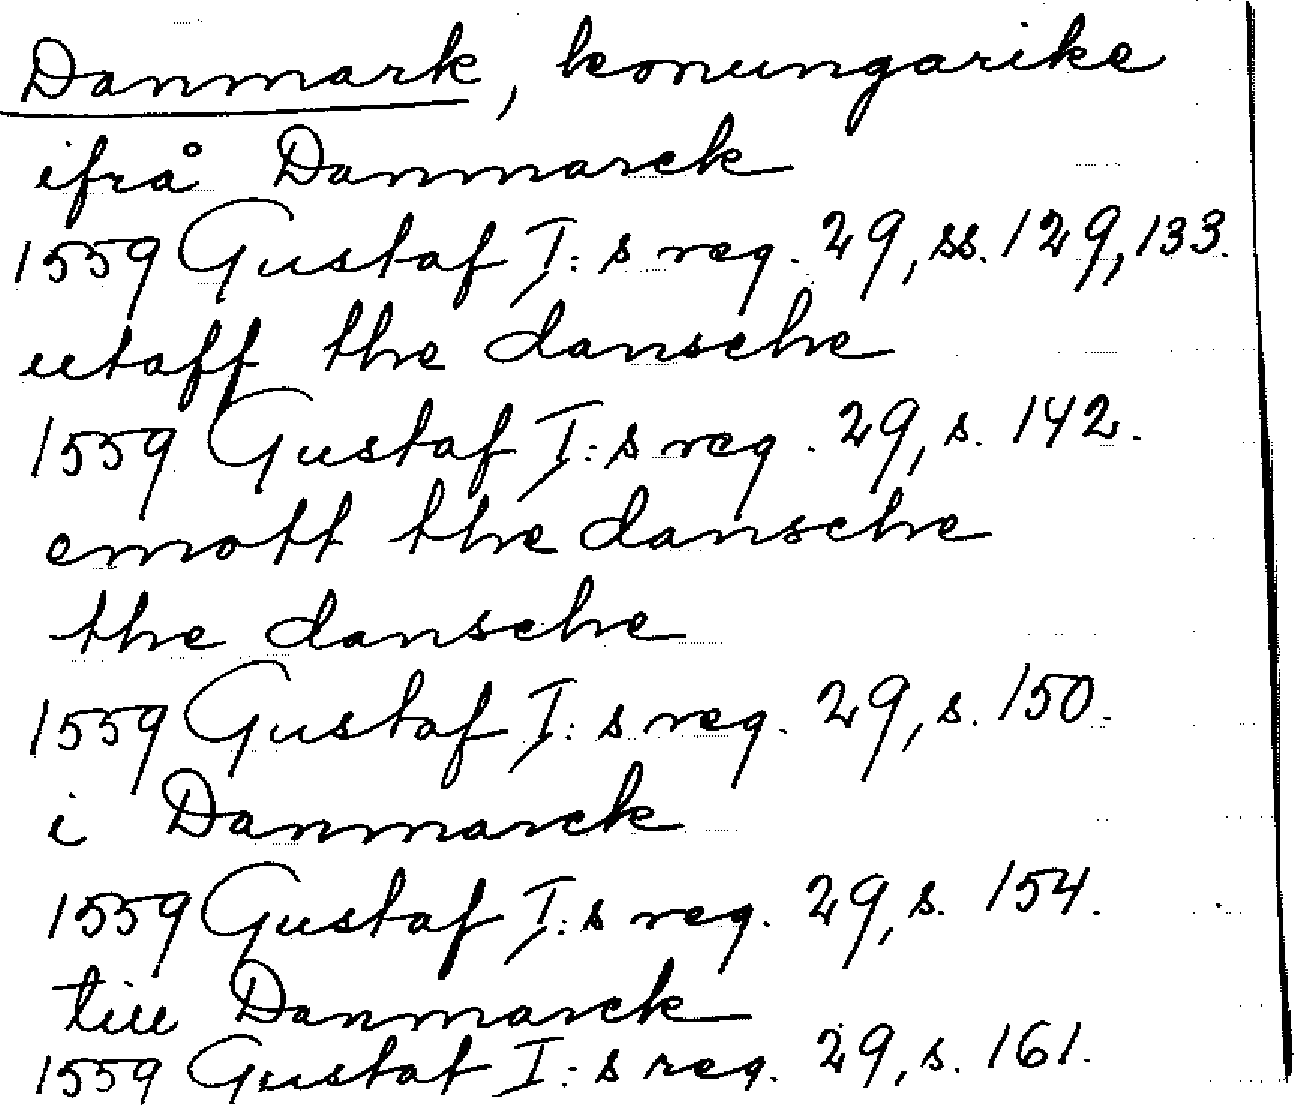 Danmark, konungarike
ifrå Danmarck
1559 Gustaf I:s reg. 29, ss. 129, 133.
utaff the dansche
1559 Gustaf I:s reg. 29, s. 142.
emott the dansche
the dansche
1559 Gustaf I:s reg. 29, s. 150.
i Danmarck
1559 Gustaf I:s reg. 29, s. 154.
till Danmarck
1559 Gustaf I:s reg. 29, s. 161.